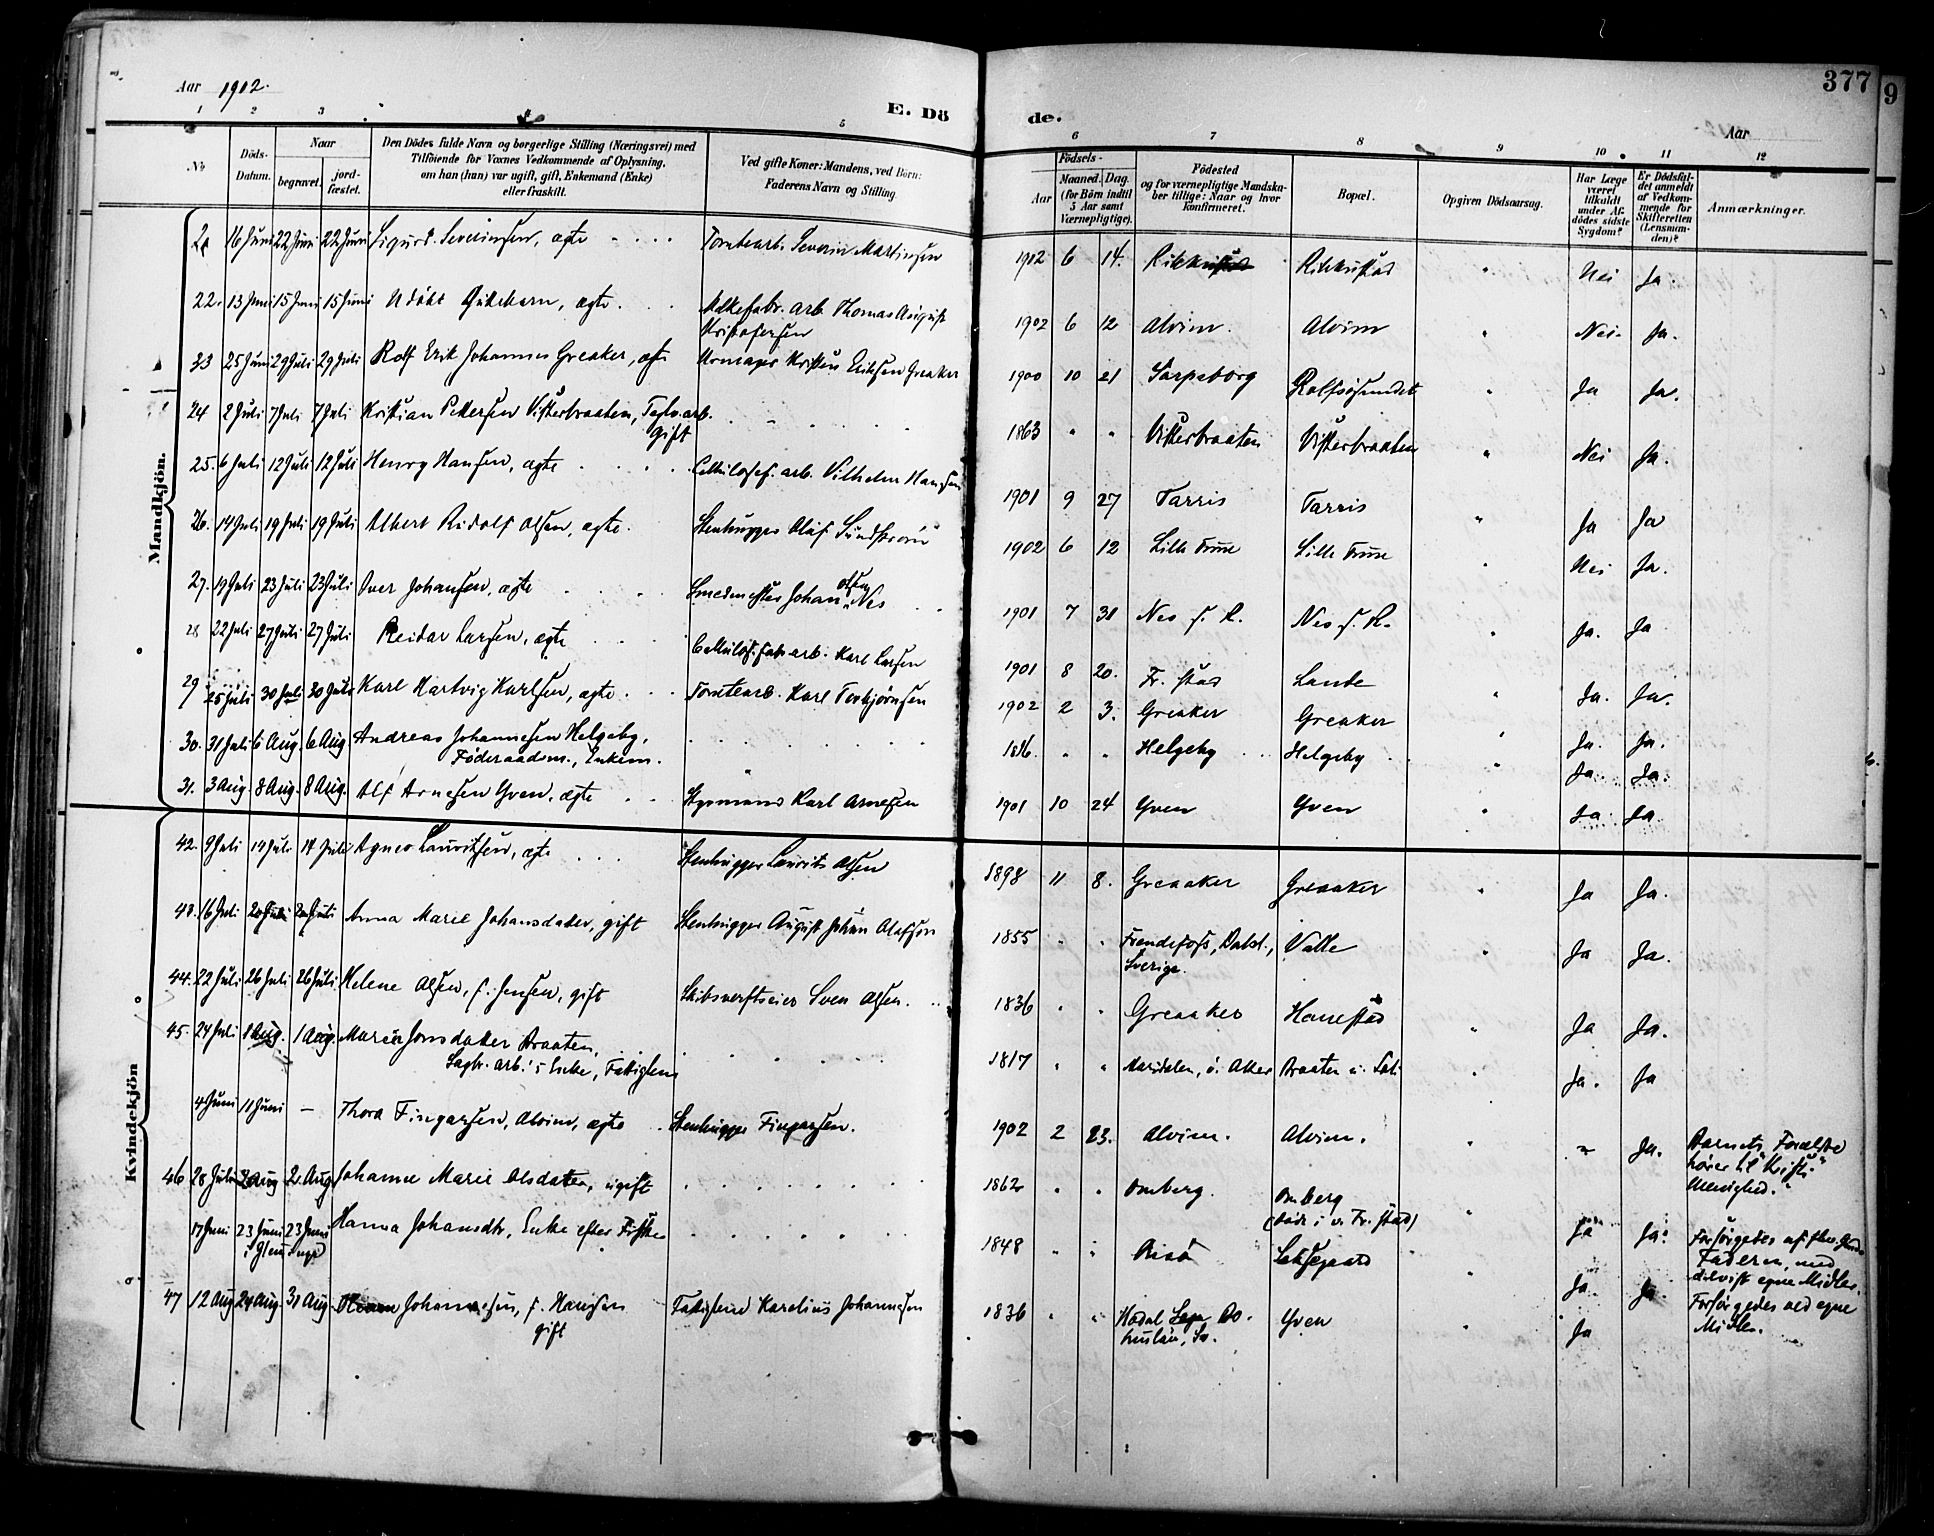 Aar 1902.
E. Döde.
377
9
Aar
1 2 3 4 5 6 7 8 9 10 11 12
No
Döds-Datum.
Naar begravet. jordfæstet.
Den Dödes fulde Navn og borgerlige Stilling (Næringsvei) med Tilföiende for Voxnes Vedkommende af Oplysning, om han (hun) var ugift, gift, Enkemand (Enke) eller fraskilt.
Ved gifte Koner: Mandens, ved Börn: Faderens Navn og Stilling.
Födsels-
Aar
Maaned. Dag.
(for Börn indtil 5 Aar samt Værnepligtige).
Födested og for værnepligtige Mandskaber tillige: Naar og hvor konfirmeret.
Bopæl.
Opgiven Dödsaarsag.
Har Læge været tilkaldt under Afdödes sidste Sygdom?
Er Dödsfaldet anmeldt af Vedkommende for Skifteretten (Lensmanden)?
Anmærkninger.
Mandkjön.
16 Juni 22 Juni 22 Juni Sigurd Severinsen, ægte Tomtearb. Severin Martinsen 1902 6 14. Nei Ja.
22. 13 Juni 15 Juni 15 Juni Udöbt Guttebarn, ægte. arb. Thomas August Kristofersen 1902 6 12 Alvim. Alvim Nei Ja.
23 25 Juni 29 Juli 29 Juli Rolf Erik Johannes Greaker, ægte Urmager Kristen Eriksen Greaker 1900 10 21 Sarpsborg Rolfsösundet Ja Ja.
24 2 Juli 7 Juli 7 Juli Kristian Pettersen Visterbraaten, Teglv.arb. gift 1863 " " Visterbraaten Visterbraaten Nei Ja.
25. 6 Juli 12 Juli 12 Juli Henry Hansen, ægte Cellulosef. arb. Vilhelm Hansen 1901 9 27 Tarris Tarris Ja Ja
26. 14 Juli 19 Juli 19 Juli Albert Ridolf Olsen, ægte. Stenhugger Olaf Sundström 1902 6 12 Lille Tune Lille Tune Nei Ja.
27. 19 Juli 23 Juli 23 Juli Iver Johansen, ægte Smedmester Johan Olsen Nes 1901 7 31 Nes s. R. Nes s. R. Ja. Ja
28 22 Juli 27 Juli 27 Juli Reidar Larsen, ægte Cellulos. fab. arb. Karl Larsen 1901 8 20. Fr. stad Lande Ja. Ja.
29 25 Juli 30 Juli 30 Juli Karl Hartvig Karlsen, ægte. Tomtearb. Karl Torbjørnsen 1902 2 3. Greaker Greaker Ja. Ja.
30. 31 Juli 6 Aug. 6 Aug. Andreas Johannesen Helgeby, Föderaadsm., Enkem. 1816. " " Helgeby Helgeby Ja. Ja.
31. 3 Aug. 8 Aug. 8 Aug. Alf Arnesen Yven, ægte Karl Arnesen 1901 10 24 Yven Yven Ja Ja
Kvindekjön
42. 9 Juli 14 Juli 14 Juli Agnes Lauritsen, ægte Stenhugger Laurits Olsen 1898 11 8. Greaaker Greaaker Ja Ja.
43. 16 Juli 20 Juli 20 Juli Anna Marie Johansdatter, gift Stenhugger August Johan Olafsson 1855 " " Frendefors, Dalsl., Sverige. Valle Ja Ja.
44. 22 Juli 26 Juli 26 Juli Helene Olsen, f. Jensen, gift Skibsverftseier Sven Olsen. 1836 " " Greaaker Hannestad Ja Ja.
45. 24 Juli 1 Aug. 1 Aug. Marie Jonsdatter Braaten, Sagbr. arb.'s Enke, Fattiglem 1817 " " Maridalen, ö. Aker Braaten u. Ja. Ja
4 Juni 11 Juni — Thora Fingarsen, Alvim, ægte Stenhugger Fingarsen. 1902 2 23. Alvim. Alvim. Ja. Barnets Forældre hörer til "Kristi Menighed."
46 28 Juli 2 Aug 2 Aug Johanne Marie Olsdatter, ugift 1862 " " Omberg. Omberg (död i v. Fr. stad) Ja Ja.
17 Juni 23 Juni 23 Juni i Glemminge Hanna Johansdtr, Enke efter Fisker 1848 " " Risö Ja. Ja.
Fadern, med delvist egne Midler.
47 12 Aug 24 Aug 31 Aug Johannesen, f. Hansen gift Fattiglem Karelius Johannesen 1836 " " Yven Ja Forsörgedes ved egne Midler.